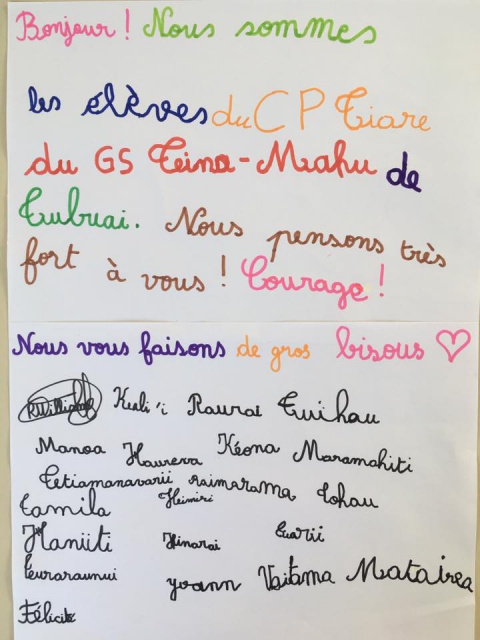 Bonjour ! Nous sommes
les élèves du CP Tiare
du GS Teina-Mahu de
Tubuai. Nous pensons très
fort à vous ! Courage !
Nous vous faisons de gros bisous
Keali'i Raurai Tuihau
Manoa Haurewa Kéona Maramahiti
Tetiamanavarii Raimarama Tohau
Tamila Heimiri
Haniiti Hinarai Tearii
Teuraraumui yoann Vaitama Matairea
Félicité